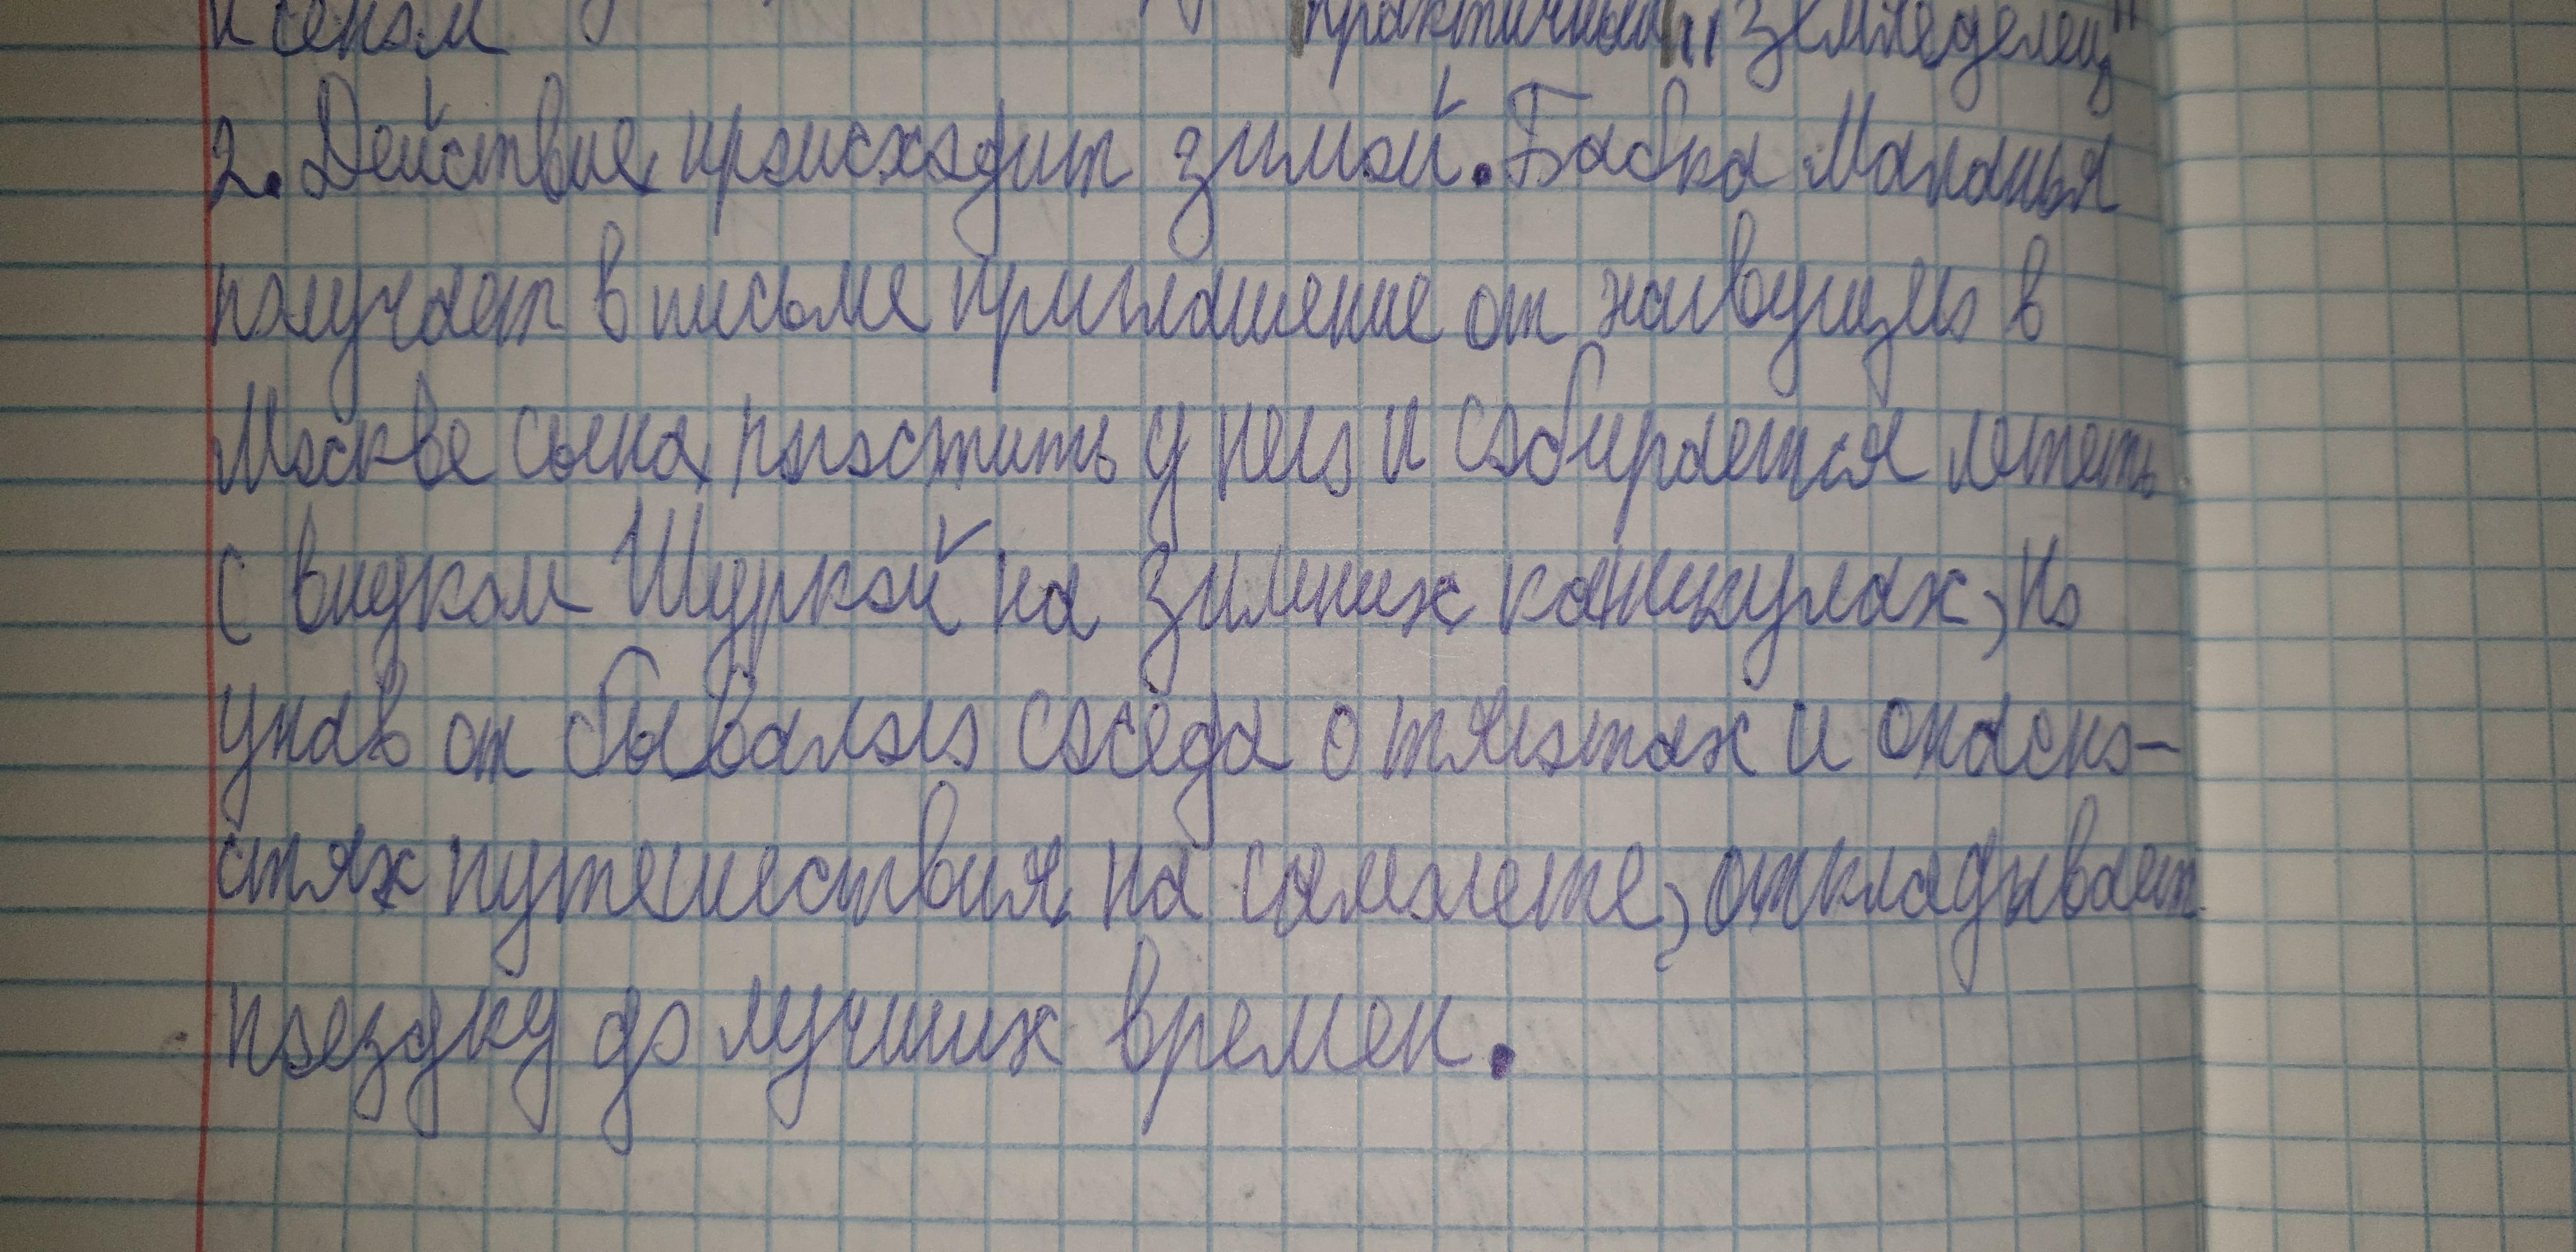 и сеном практичный "земледелец"
2. Действие происходит зимой. Бабка Маланья
получает в письме приглашение от живущего в
Москве сына, погостить у него и собирается лететь
с внуком Шуркой на зимних каникулах, но
узнав от бывалого соседа о тяготах и опасно-
стях путешествия на самолете, откладывает
поездку до лучших времен.